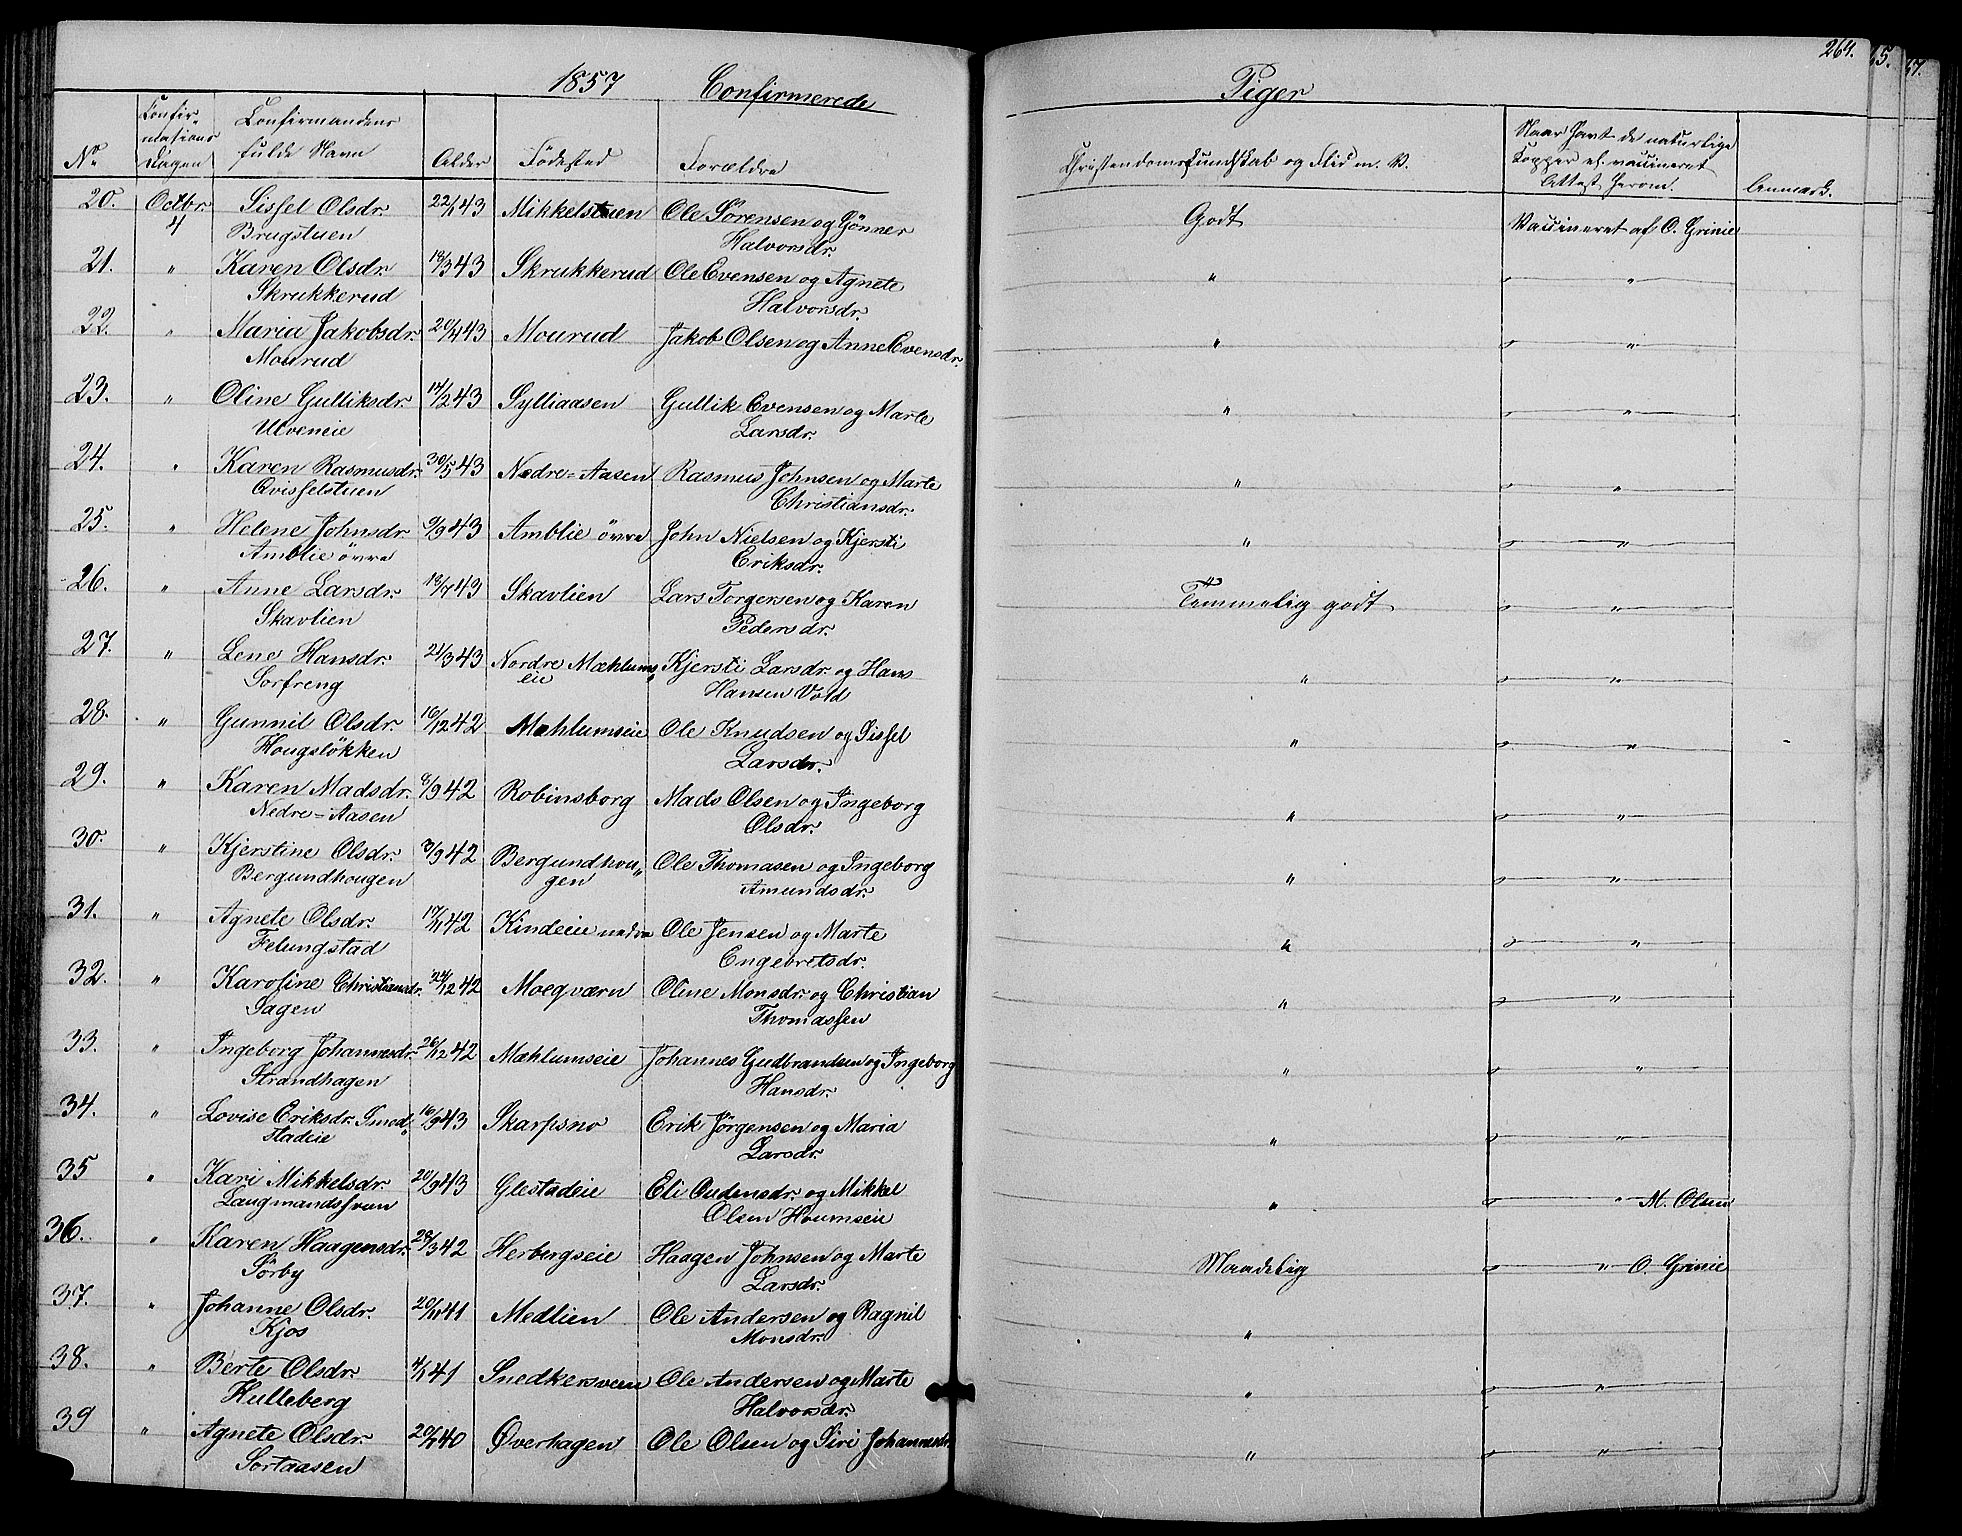 264.
1857 Confirmerede Piger
No Confirmations Dagen Confirmandens fulde Navn Alder Födested Forældre Christendomskundskab og Flid m. V. Naar havt de naturlige Kopper el. vaccineret Attest herom. Anmærk.
20. Octbr. 22/1 43 Mikkelstuen Ole Sörensen og Gönner Godt Vaccineret af O. Grinie
4 Sissel Olsdr.
Brugstuen Halvorsdr.
21. " Karen Olsdr. 18/3 43 Skrukkerud Ole Evensen og Agnete " " "
Skrukkerud Halvorsdr.
22. " Maria Jakobsdr. 20/4 43 Mourud Jakob Olsen og Anne Evensdr. " " "
Mourud
23. " Oline Gulliksdr. 14/2 43 Sylliaasen Gullik Evensen og Marte " " "
Ulveneie Larsdr.
24. " Karen Rasmusdr. 30/5 43 Nedre=Aasen Rasmus Johnsen og Marte " " "
Qvisselstuen Christiansdr.
25. " Helene Johnsdr. 9/9 43 Amblie övre John Nielsen og Kjersti " " "
Amblie övre Eriksdr.
26. " Anne Larsdr. 18/7 43 Skavlien Lars Torgersen og Karen Temmelig godt " "
Skavlien Pedersdr.
27. " Lene Hansdr. 21/3 43 Nordre Mæhlums Kjersti Larsdr. og Hans " " "
Sorfreng eie Hansen Vold
28. " Gunnil Olsdr. 16/12 42 Mæhlumseie Ole Knudsen og Sissel " " "
Hougslökken Larsdr.
29. " Karen Madsdr. 8/9 42 Robinsborg Mads Olsen og Ingeborg " " "
Nedre=Aasen Olsdr.
30. " Kjerstine Olsdr. 3/9 42 Bergundhou" Ole Thomasen og Ingeborg " " "
Bergundhougen gen Amundsdr.
31. " Agnete Olsdr. 17/11 42 Kindeie nedre Ole Jensen og Marte " " "
Felungstad Engebretsdr.
32. " Karoline Christiansdr. 24/12 42 Moeqværn Oline Monsdr. og Christian " " "
Sagen Thomassen
33. " Ingeborg Johannesdr. 26/12 42 Mæhlumseie Johannes Gudbrandsen og Ingeborg " " "
Strandhagen Hansdr.
34. " Lovise Eriksdr. Smed" 16/9 43 Skarpsno Erik Jörgensen og Maria " " "
stadeie Larsdr.
35 " Kari Mikkelsdr. 20/9 43 Glestadeie Eli Oudensdr. og Mikkel " " " M. Olsen
Olsen Houmseie
36. " Karen Haagensdr. 28/3 42 Herbergseie Haagen Johnsen og Marte Maadelig " " O. Grinie
Sörby Larsdr.
37. " Johanne Olsdr. 20/11 41 Medlien Ole Andersen og Ragnil "
Kjos Monsdr.
38. " Berte Olsdr. 4/1 41 Snedkersveen Ole Andersen og Marte " " "
Kulleberg Halvorsdr.
39 " Agnete Olsdr. 20/2 40 Øverhagen Ole Olsen og Siri Johannesdr. " " "
Sortaasen